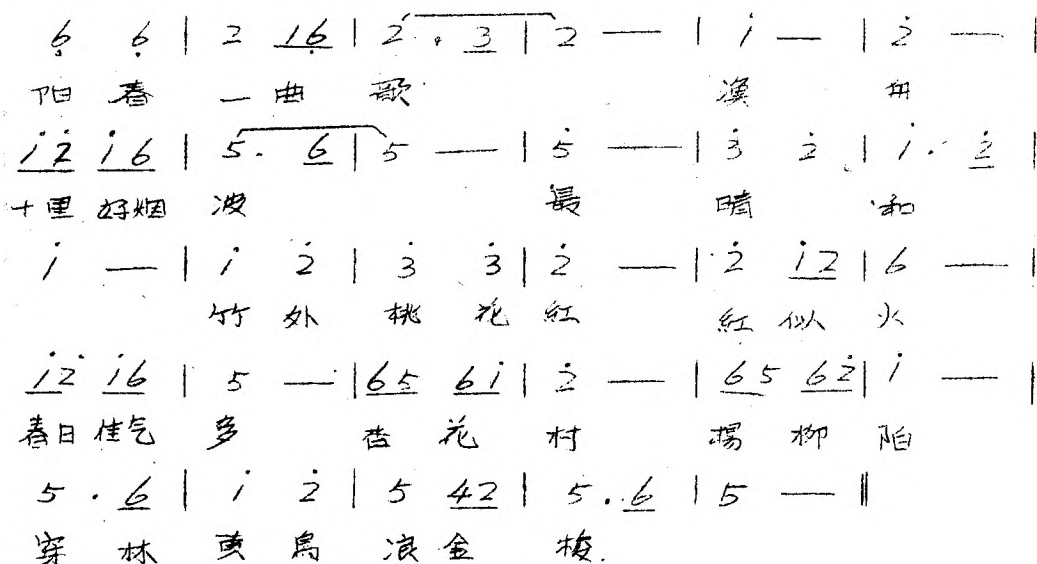 6̣ 6̣ | 2 1 6̣ | 2 . 3 | 2 — | 1̇ — | 2̇ — |
阳 春 一 曲 歌 漢 舟
1̇ 2̇ 1̇ 6 | 5 . 6 | 5 — | 5̇ — | 3̇ 2̇ | 1̇ . 2̇ |
十里 好烟 波 最 晴 和
1̇ — | 1̇ 2̇ | 3̇ 3̇ | 2̇ — | 2̇ 1̇ 2 | 6 — |
竹 外 桃 花 红 红 似 火
1̇ 2̇ 1̇ 6 | 5 — | 6 5 6 1̇ | 2̇ — | 6 5 6 2̇ | 1̇ — |
春日 佳气 多 杏 花 村 楊 柳 陌
5 . 6 | 1̇ 2̇ | 5 4 2 | 5 . 6 | 5 — ‖
穿 林 黄 鸟 浪 金 梭.